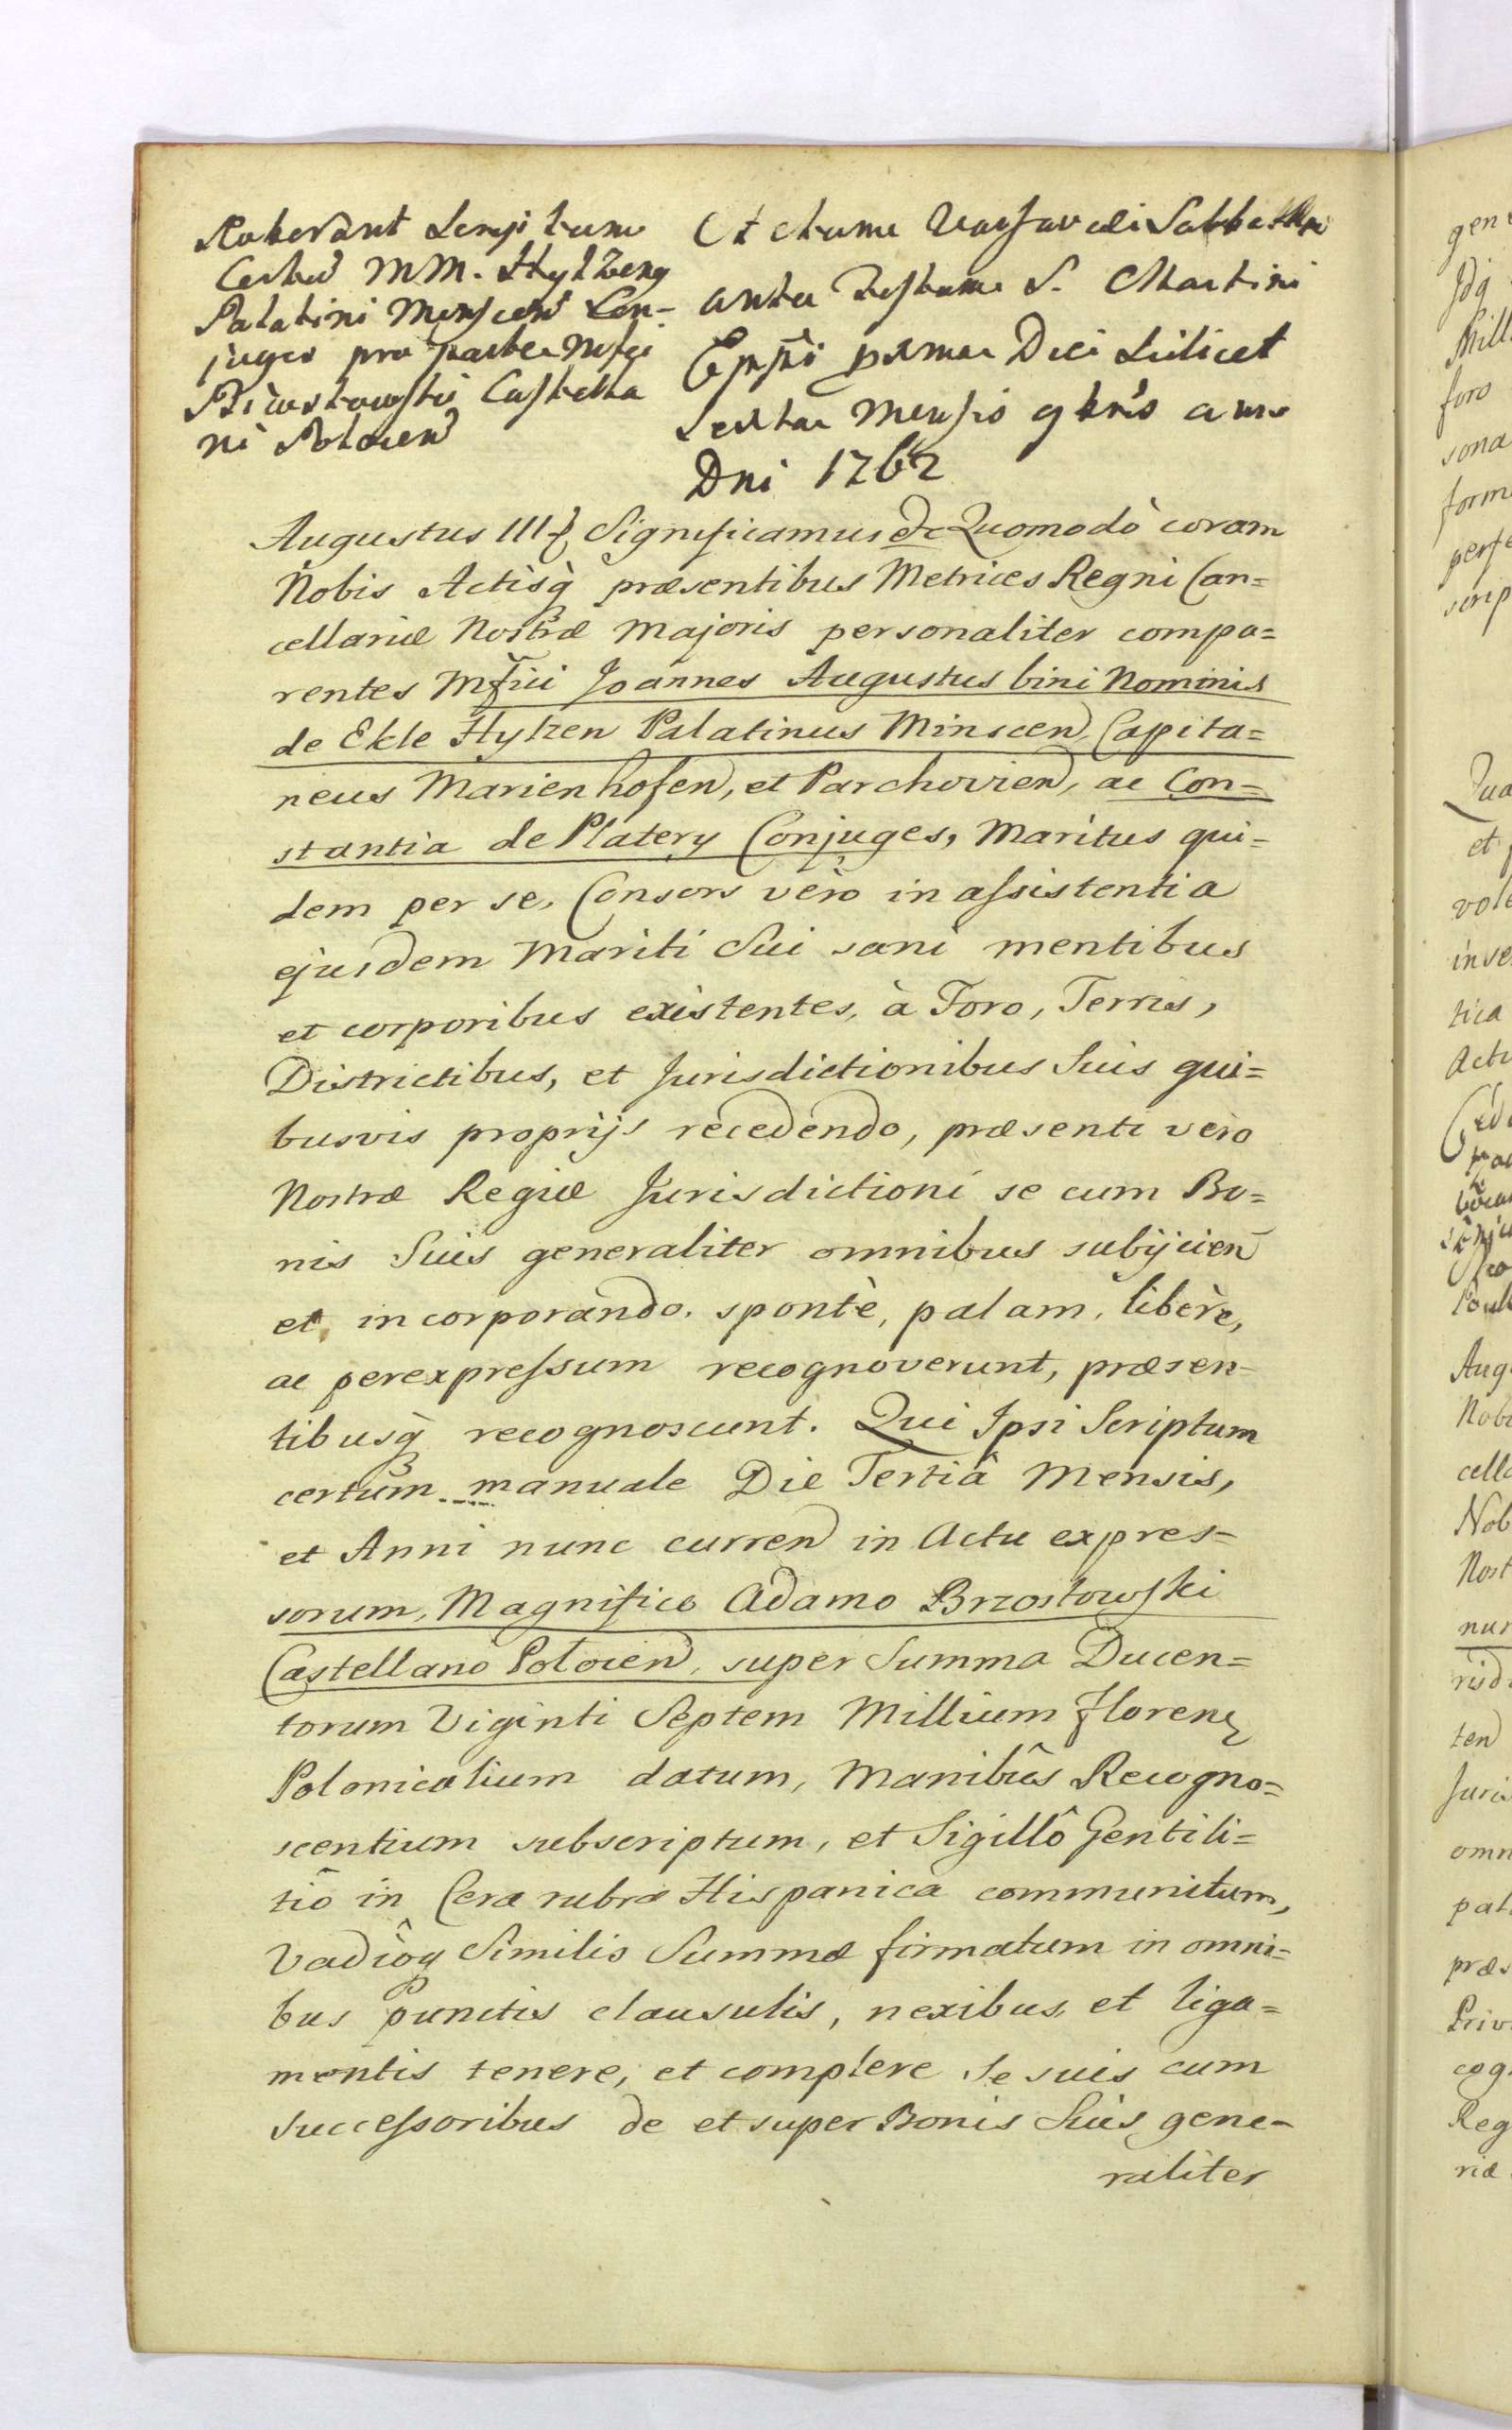 Roborant Scriptum
Certum MM. Hylzeny
Palatini Minscen Con-
juges pro parte Mfci
Brzostowski Castella
ni Polocen
Actum Varsaviæ Sabbatho
ante Festum S. Martini
Eppi pxma Die Scilicet
Sexta Mensis 9bris anno
Dni 1762
Augustus III Significamus &c Quomodò coram
Nobis Actisq præsentibus Metrices Regni Can=
cellariæ Nostræ Majoris personaliter compa=
rentes Mfici Joannes Augustus bini Nominis
de Ekle Hylzen Palatinus Minscen, Capita=
neus Marienhofen, et Parchovien, ac Con=
stantia de Platery Conjuges, Maritus qui=
dem per se, Consors verò in assistentia
ejusdem Mariti Sui sani mentibus
et corporibus existentes, à Foro, Terris,
Districtibus, et Jurisdictionibus Suis qui=
busvis proprijs recedendo, præsenti vero
Nostræ Regiæ Jurisdictioni se cum Bo=
nis Suis generaliter omnibus subijcien
et incorporando. spontè, palam, liberè,
ac perexpressum recognoverunt, præsen=
tibusq recognoscunt. Qui Ipsi Scriptum
certum manuale Die Tertiâ Mensis,
et Anni nunc curren in Actu expres=
sorum, Magnifico Adamo Brzostowski
Castellano Polocen, super Summa Ducen=
torum Viginti Septem Millium Floren
Polonicalium datum, Manibûs Recogno=
scentium subscriptum, et Sigillô Gentili=
tiô in Cera rubra Hispanica communitum,
Vadiôq Similis Summæ firmatum in omni=
bus punctis clausulis, nexibus, et liga=
mentis tenere, et complere Se suis cum
Successoribus de et super Bonis Suis gene=
raliter